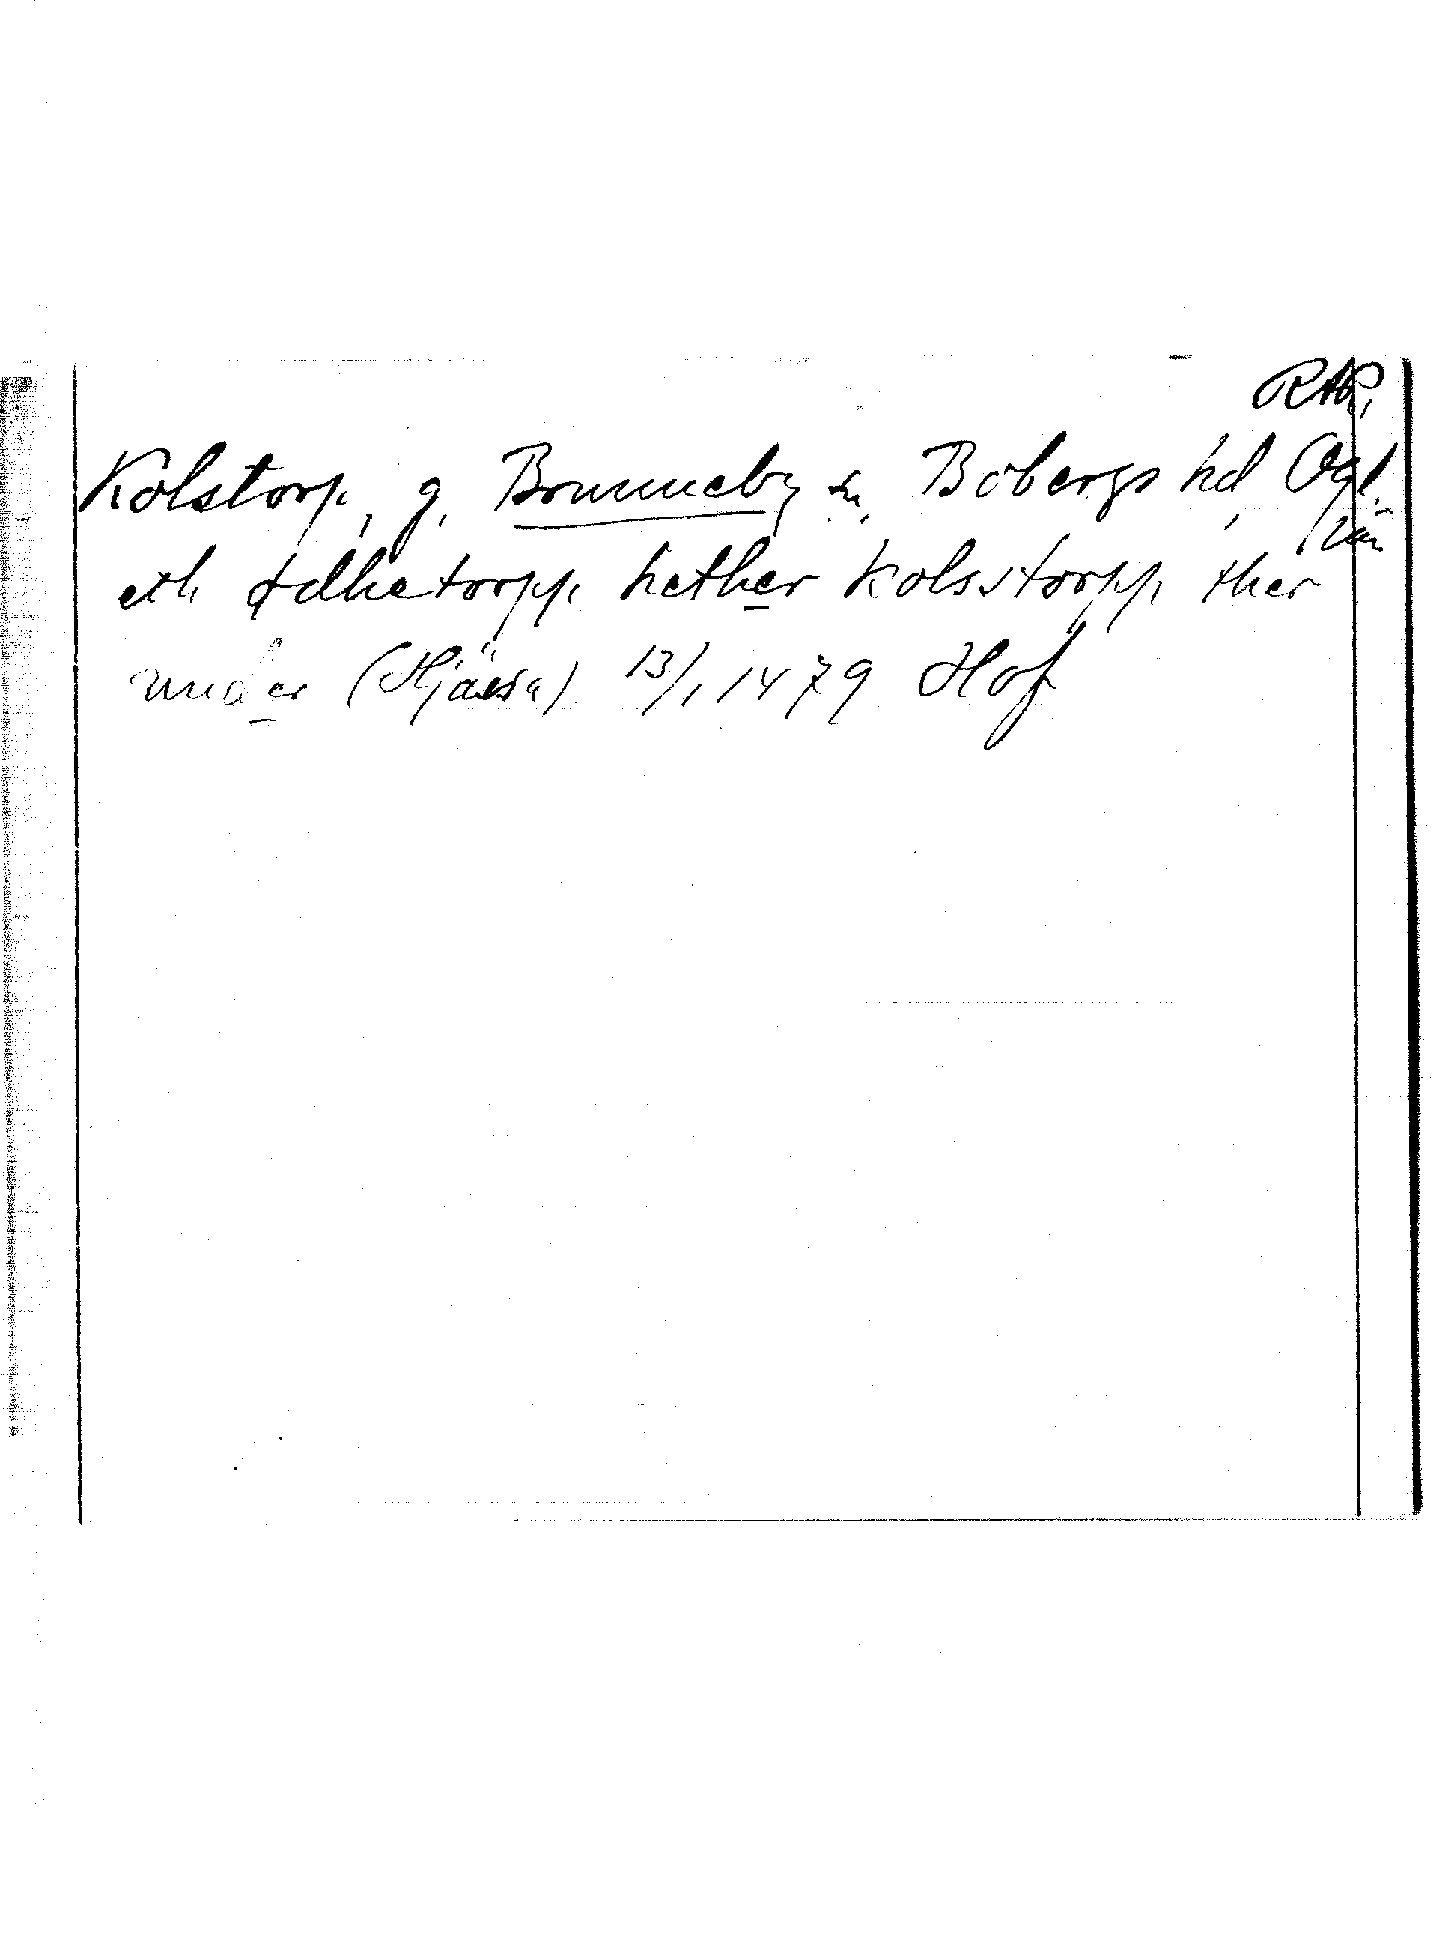 RAP.
Kolstorp, g. Brunneby sn, Bobergs hd, Ögl.
eth ødhetorpp hether Kolsstorpp ther
under (Kjärsa) 13/1 1479 Hof